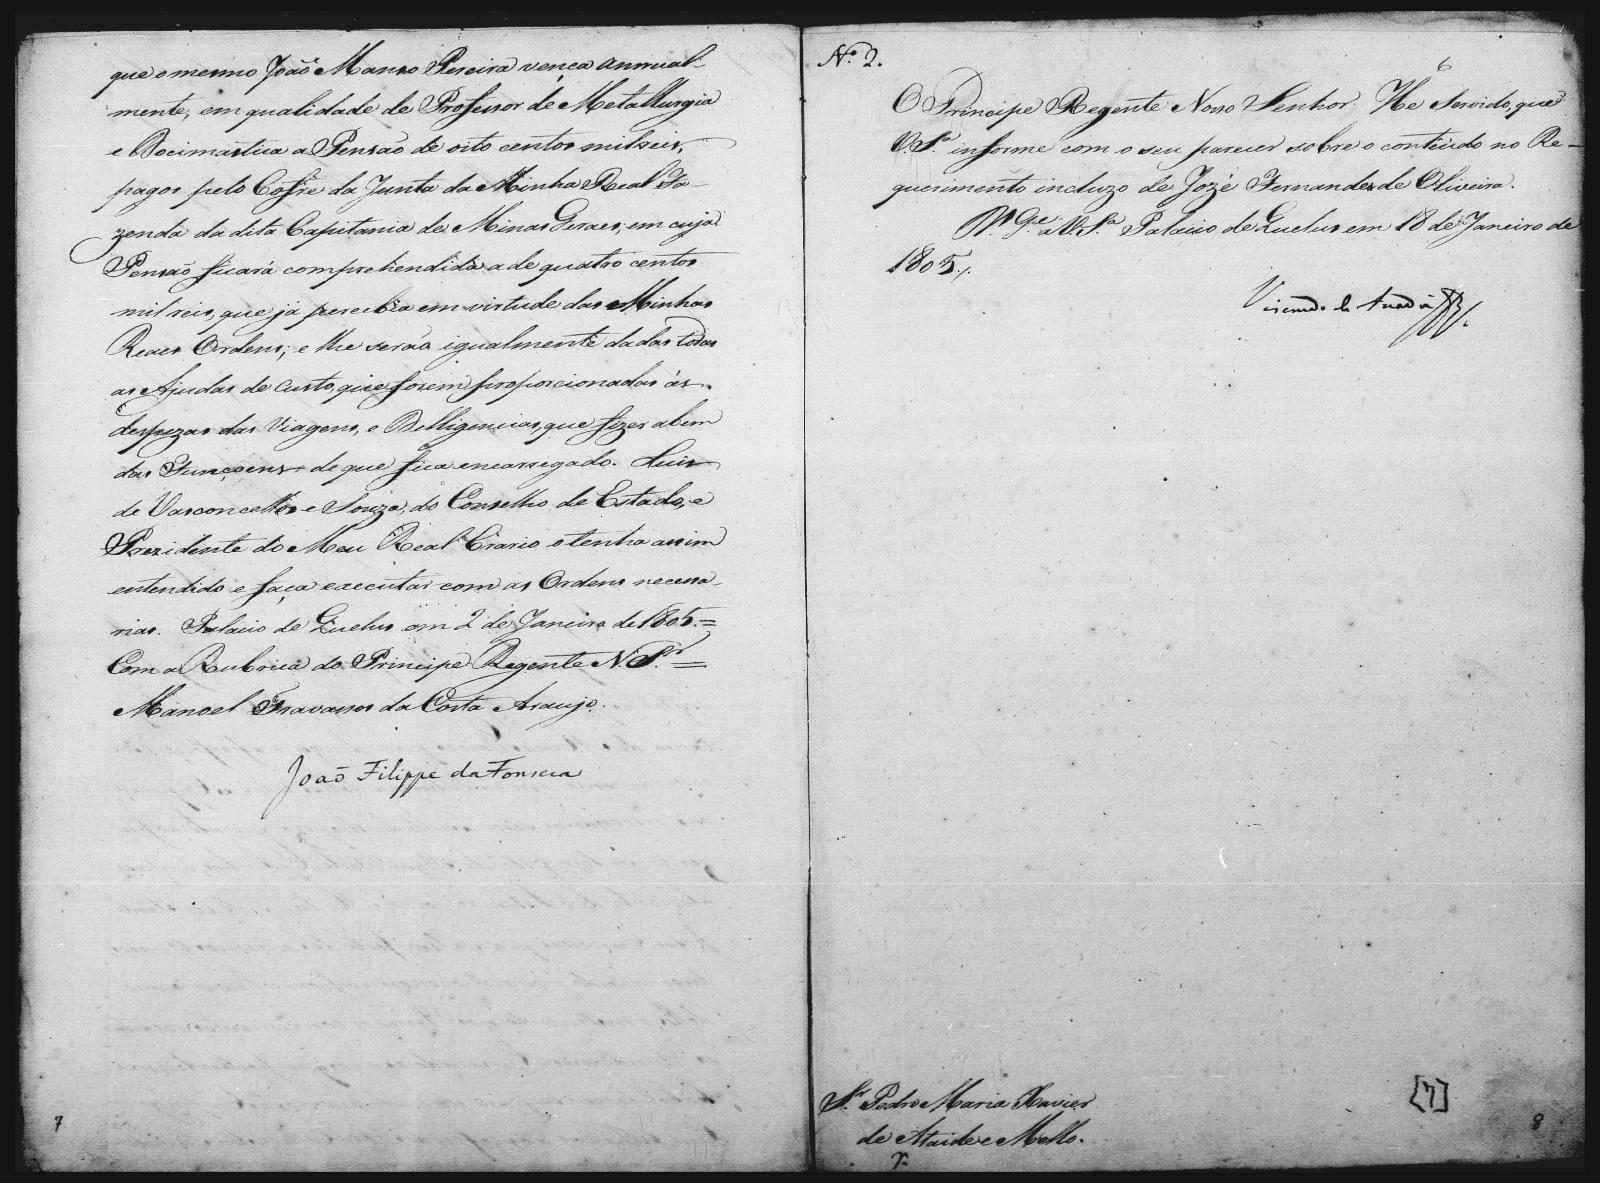 que o mesmo João Manso Pereira vença annual-
mente, em qualidade de Professor de Metallurgia
e Docimastica a Pensão de oito centos mil reis,
pagos pelo Cofre da Junta da Minha Real Fa-
zenda da dita Capitania de Minas Geraes; em cuja
Pensão ficará comprehendida a de quatro centos
mil reis, que já percebia em virtude das Minhas
Reaes Ordens; e lhe serão igualmente dadas todas
as Ajudas de Custo, que forem proporcionadas ás
despezas das Viagens, e Delligencias, que fizer a bem
das Funçoens de que fica encarregado. Luis
de Vasconcellos e Souza, do Conselho de Estado, e
Prezidente do Meu Real Erario o tenha assim
entendido e faça executar com as Ordens necessa-
rias. Palacio de Quelus em 2 de Janeiro de 1805.=
Com a Rubrica do Principe Regente N. Sr. =
Manoel Travassos da Costa Araujo.
João Filippe da Fonseca
7
N.º 2.
6
O Principe Regente Nosso Senhor He Servido, que
V. S.ª informe com o seu parecer sobre o conteúdo no Re-
querimento incluzo de Jozé Fernandes de Oliveira.
D.s G.e a V. S.ª Palacio de Quelus em 18 de Janeiro de
1805./.
Visconde de Anadia
S.r Pedro Maria Xavier
de Ataide e Mello.
[7]
8